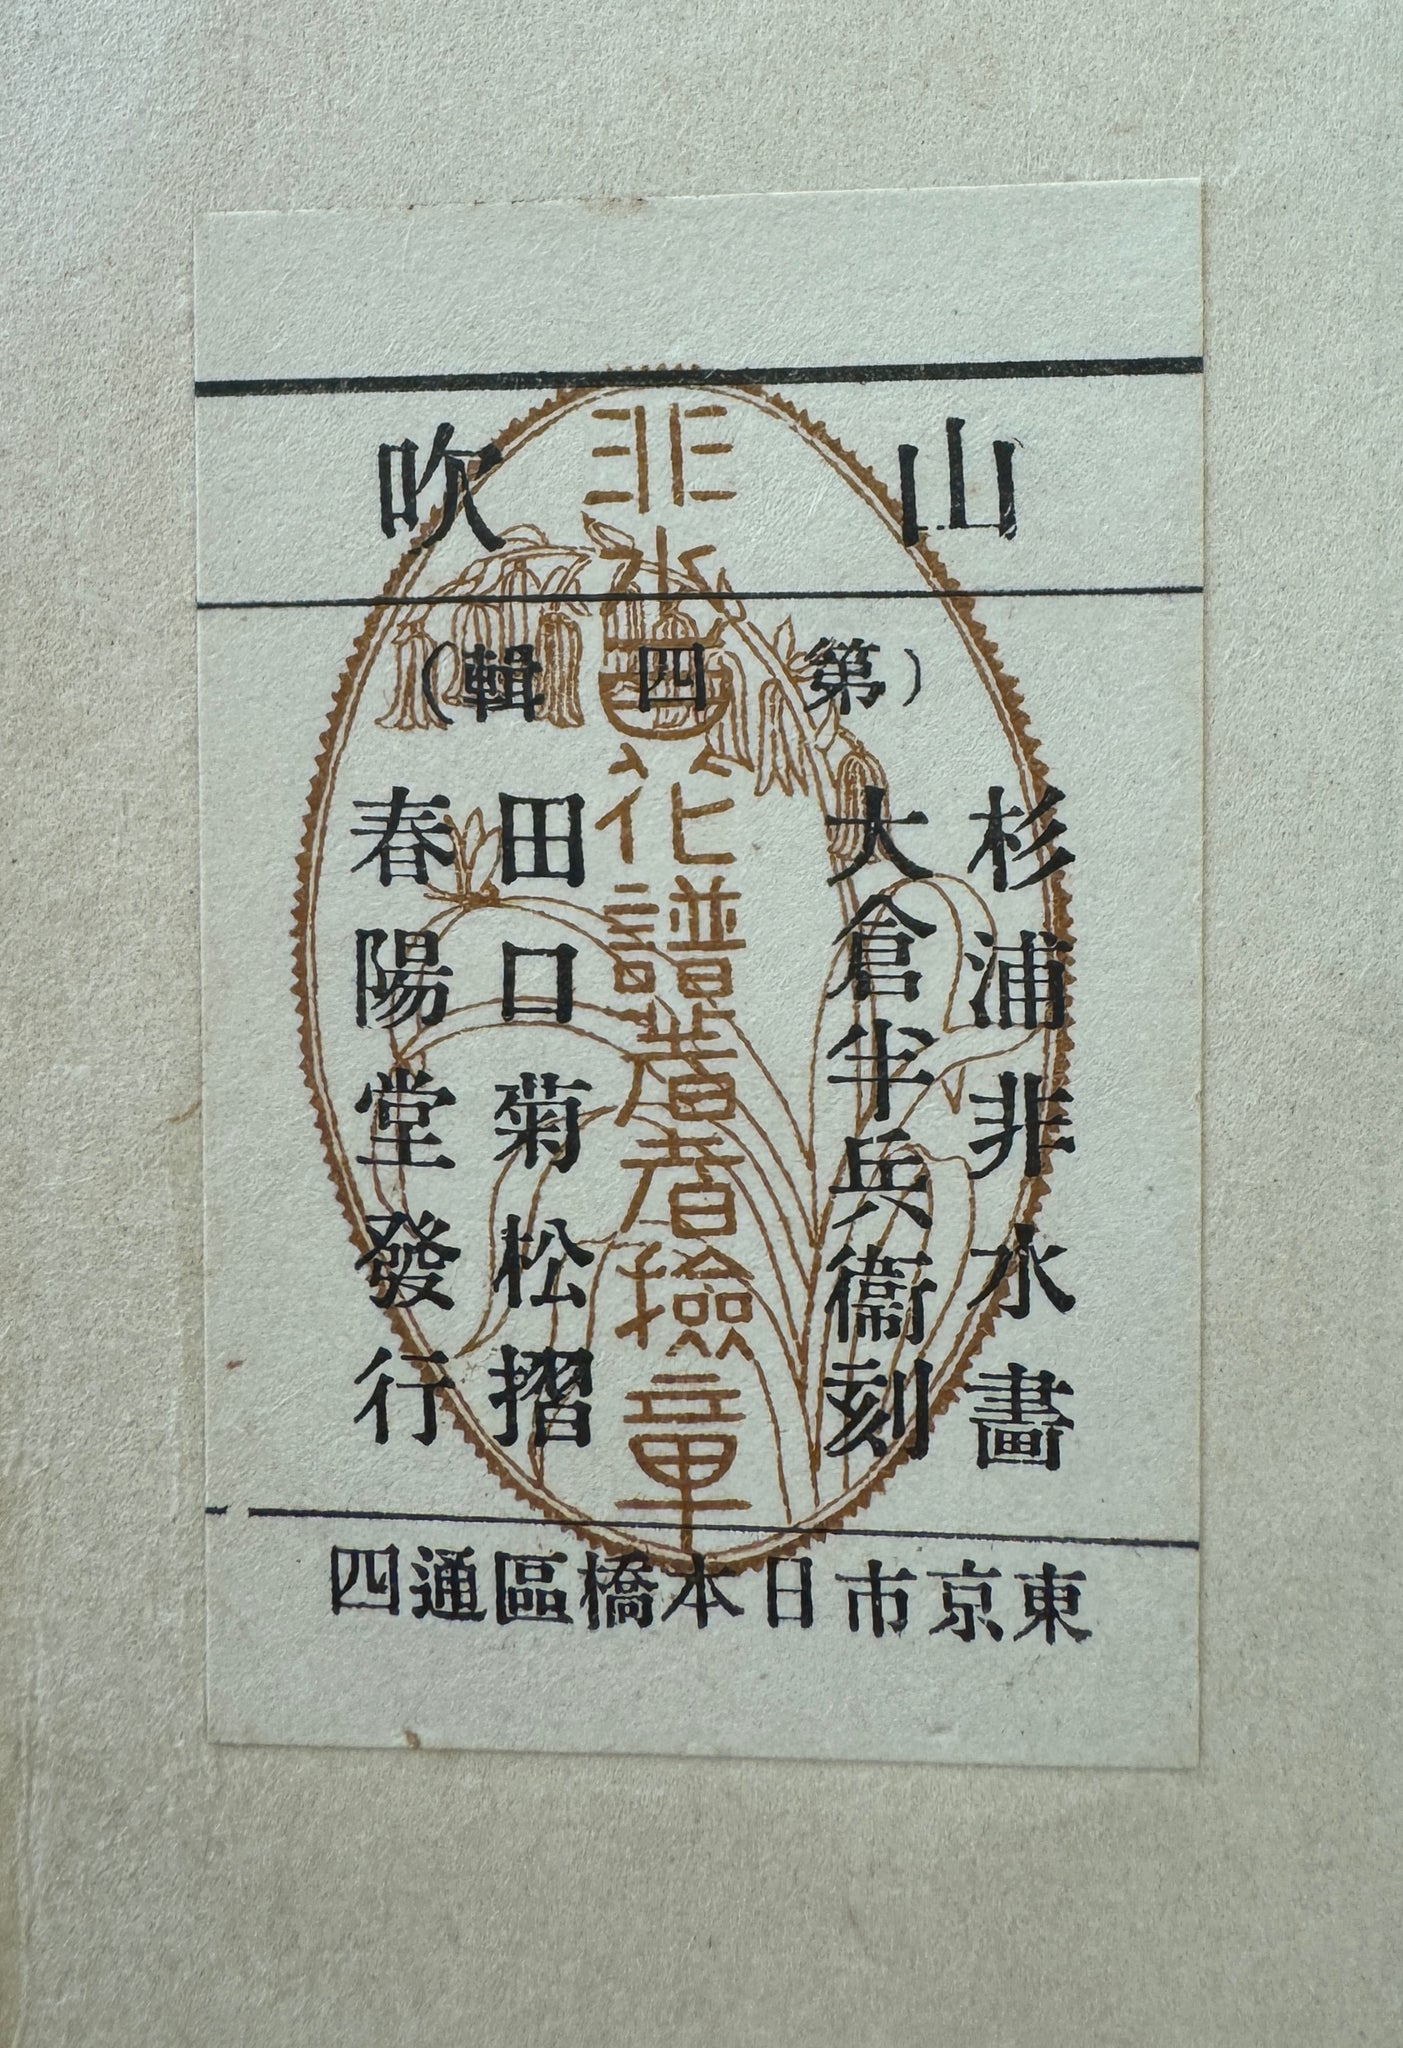 山吹
(第四輯)
杉浦非水畫
大倉半兵衞刻
非水百花譜著者撿章
田口菊松摺
春陽堂發行
東京市日本橋區通四